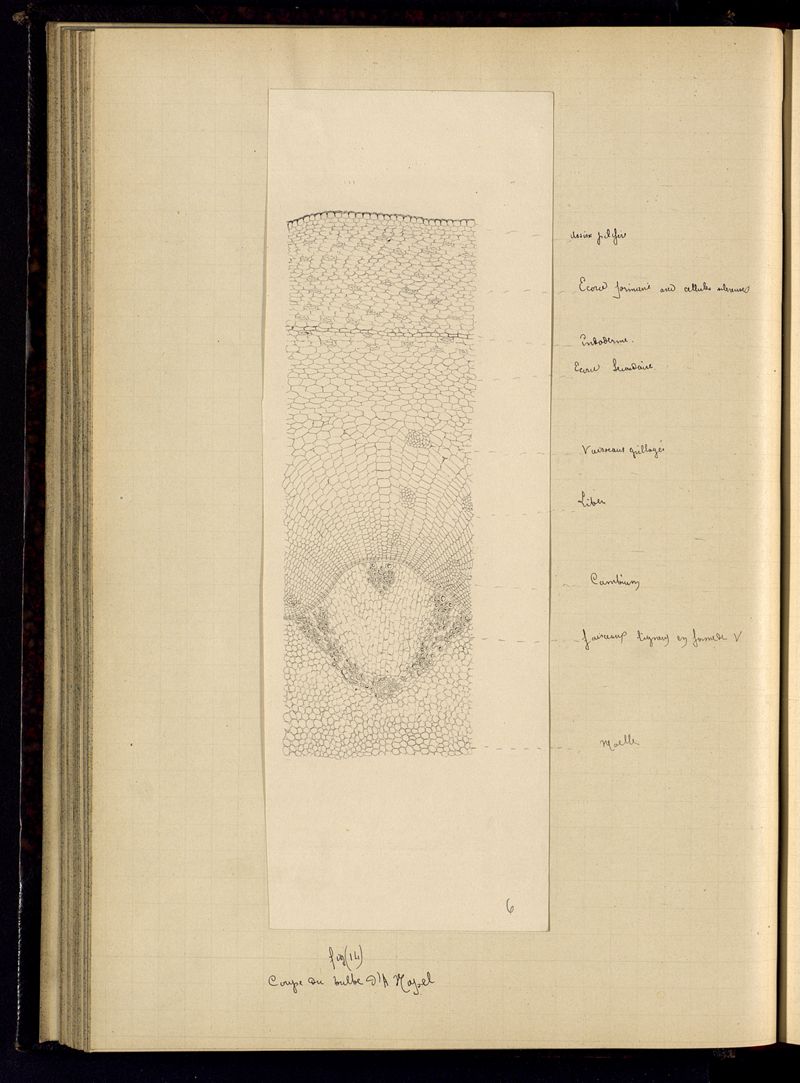 Ecorce primaire avec cellules scléreuses
Endoderme.
Ecorce Secondaire
Vaisseaux grillagés
Liber
Cambium
faisceaux ligneux en forme de V
Moelle
6
fig (14)
Coupe du bulbe d'A Napel